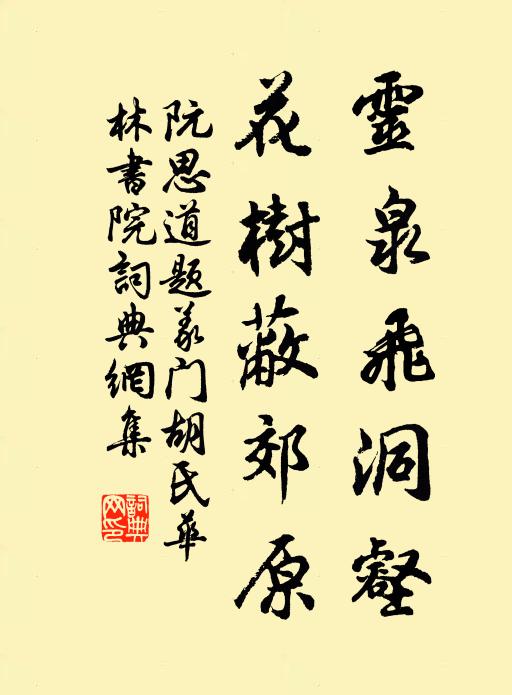 靈泉飛洞壑
花樹蔽郊原
阮思道題義门胡氏華
林書院詞典網集
詞典
网印